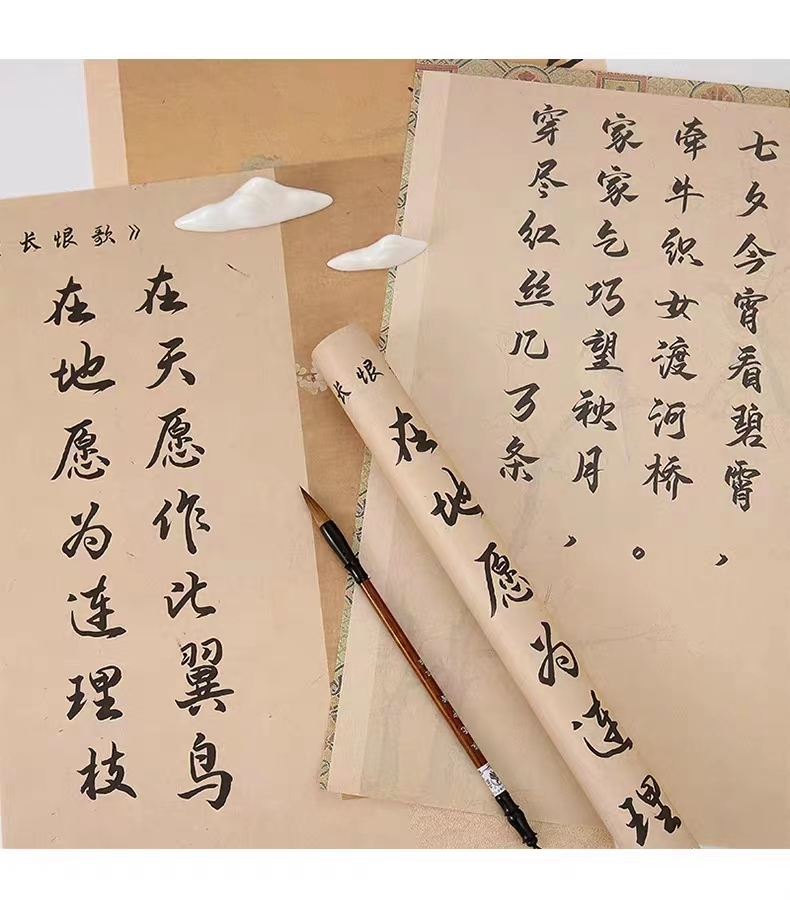 七夕今宵看碧霄，
牵牛织女渡河桥。
家家乞巧望秋月，
穿尽红丝几万条
长恨歌》
在天愿作比翼鸟
在地愿为连理枝
长恨
在地愿为连理